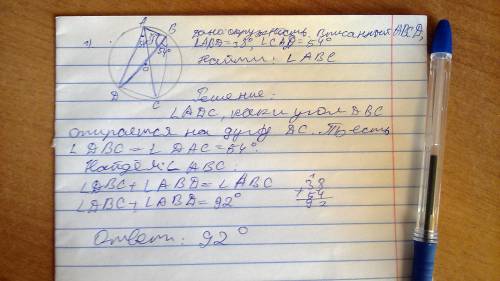 1)
A B
54° 54°
D C
дано: окружность. вписанный ABCD,
∠ABD=38°, ∠CAD=54°
Найти: ∠ABC
Решение.
∠ADC, как и угол DBC
опирается на дугу DC. То есть
∠DBC = ∠DAC = 54°.
Найдём: ∠ABC:
∠DBC + ∠ABD = ∠ABC
∠DBC + ∠ABD = 92°
38
+ 54
92
Ответ: 92°